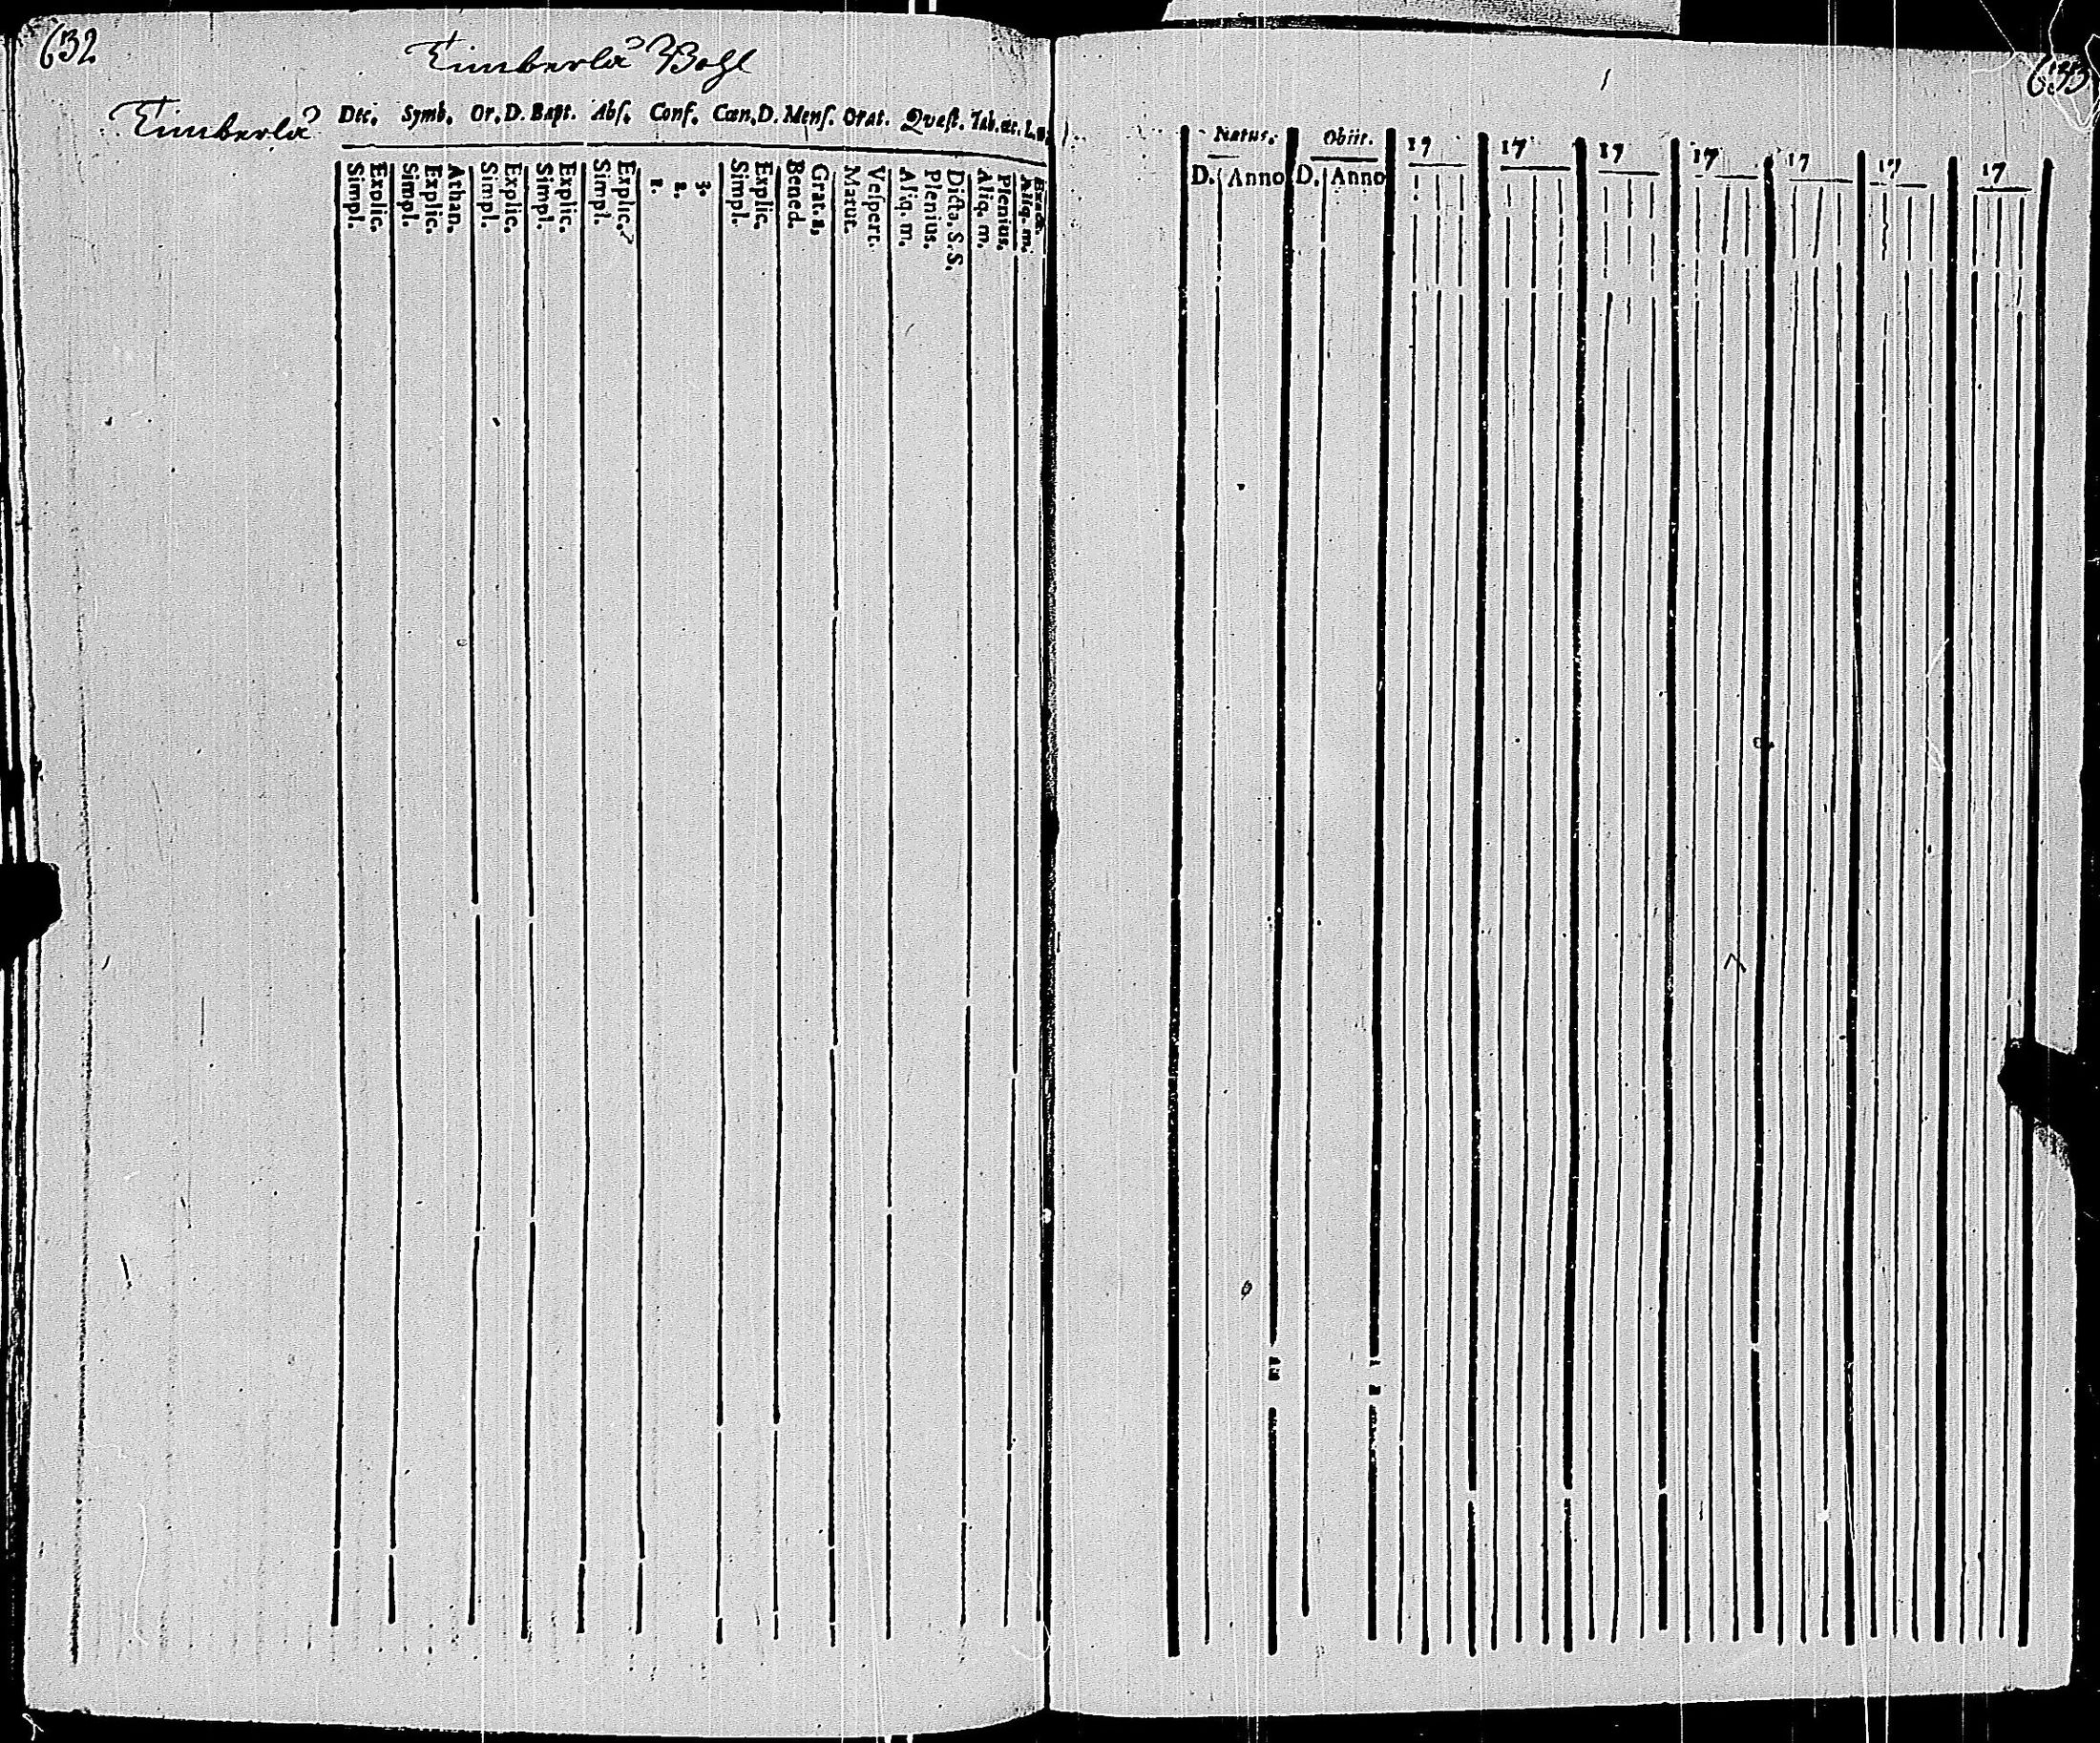 632
Timberla Bohl
Timberla
Dec. Symb. Or. D. Bapt. Abs. Conf. Cœn. D. Mens. Orat. Quæst. Tab. œc.
Simpl. Explic. Simpl. Explic. Athan. Simpl. Explic. Simpl. Explic. Simpl. Explic. 1. 2. 3. Simpl. Explic. Bened. Grat. a. Matut. Vespert. Aliq. m. Plenius. Dicta. S. S. Aliq. m. Plenius. Aliq. m.
633
Natus. Obiit. 17 17 17 17 17 17 17
D. Anno D. Anno